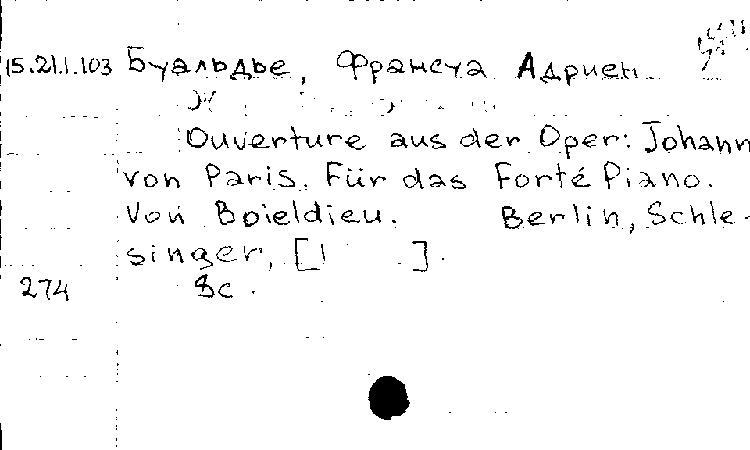 15.21.1.103 Буальдье, Франсуа Адриен
Ouverture aus der Oper: Johann
von Paris. Für das Forté Piano.
Von Boieldieu. Berlin, Schle-
singer, [ ].
274 8c.